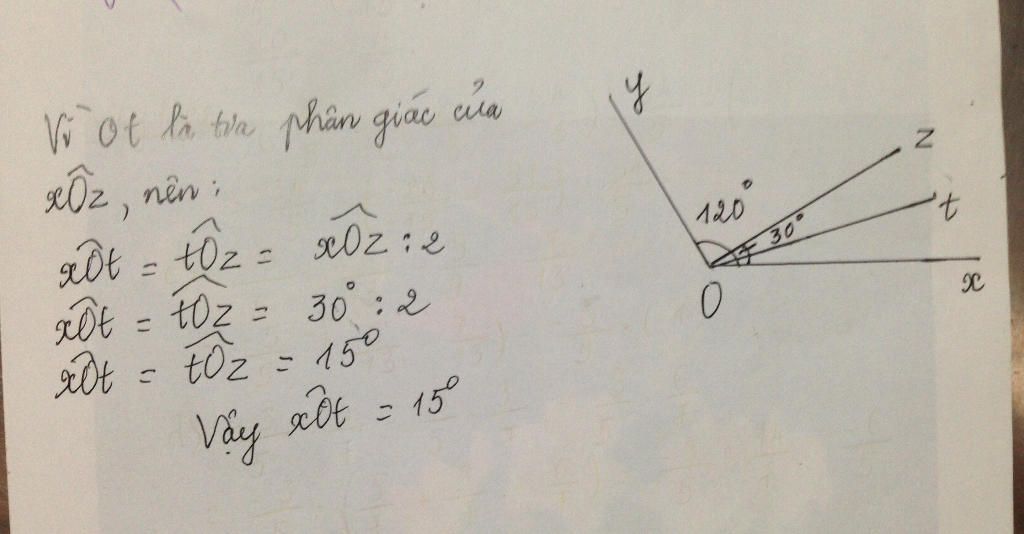 Vì Ot là tia phân giác của
xÔz, nên:
xÔt = tÔz = xÔz : 2
xÔt = tÔz = 30° : 2
xÔt = tÔz = 15°
Vậy xÔt = 15°
y
z
120°
30°
t
x
O